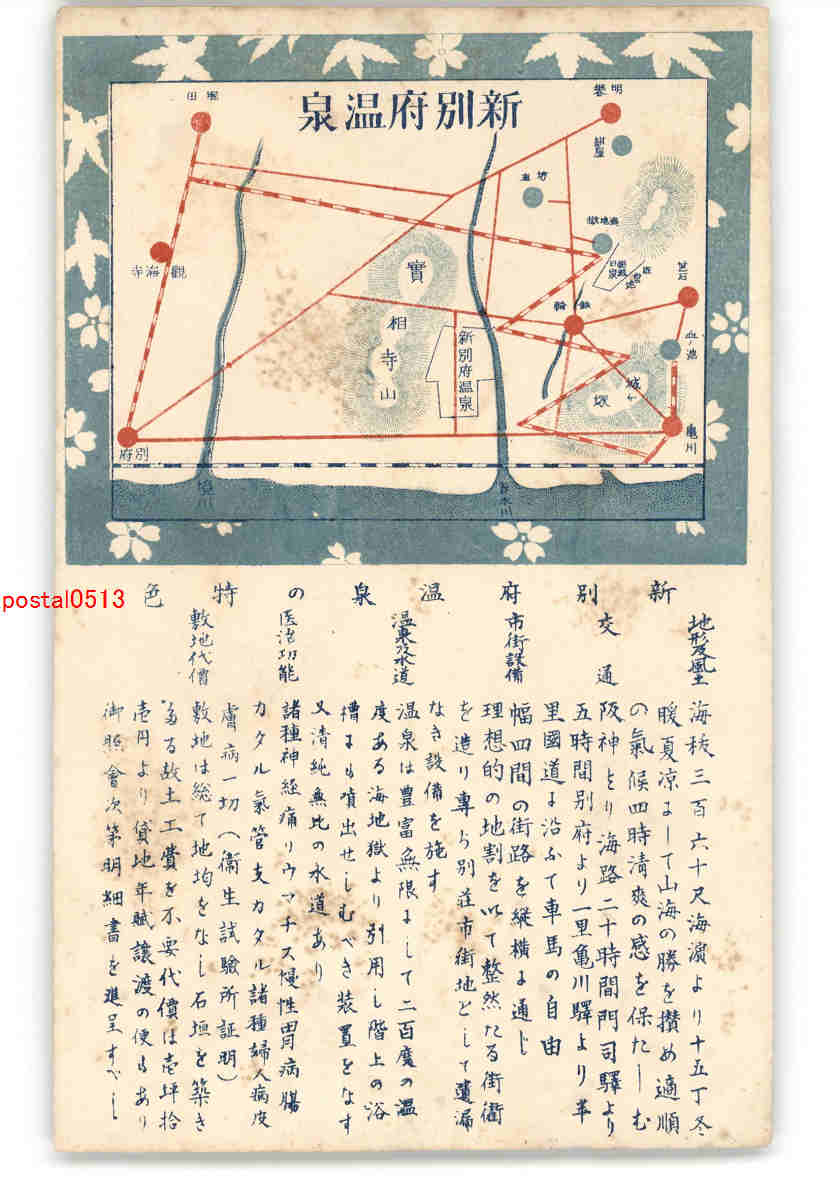 新別府温泉
堀田
明礬
紺屋
坊主
海地獄
観海寺
鉄輪
芝石
血ノ池
實相寺山
新別府温泉
城ケ塚
亀川
別府
境川
春木川
postal0513
新別府温泉の特色
地形及風土
海抜三百六十尺海濱より十五丁冬
暖夏凉にして山海の勝を攅め適順
の氣候四時清爽の感を保たしむ
交通
阪神より海路二十時間門司驛より
五時間別府より一里亀川驛より半
里國道に沿ふて車馬の自由
市街設備
幅四間の街路を縦横に通じ
理想的の地割を以て整然たる街衢
を造り専ら別荘市街地として遺漏
なき設備を施す
温泉及水道
温泉は豊富無限にして二百度の温
度ある海地獄より引用し階上の浴
槽にも噴出せしむべき装置をなす
又清純無比の水道あり
医治功能
諸種神経痛リウマチス慢性胃病腸
カタル氣管支カタル諸種婦人病皮
膚病一切(衛生試驗所証明)
敷地代價
敷地は総て地均をなし石垣を築き
ある故土工費を不要代價は壱坪拾
壱円より貸地年賦譲渡の便もあり
御照會次第明細書を進呈すべし